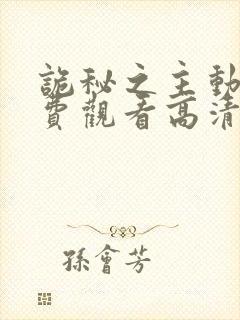 詭秘之主動
費觀看高清
孫會芳